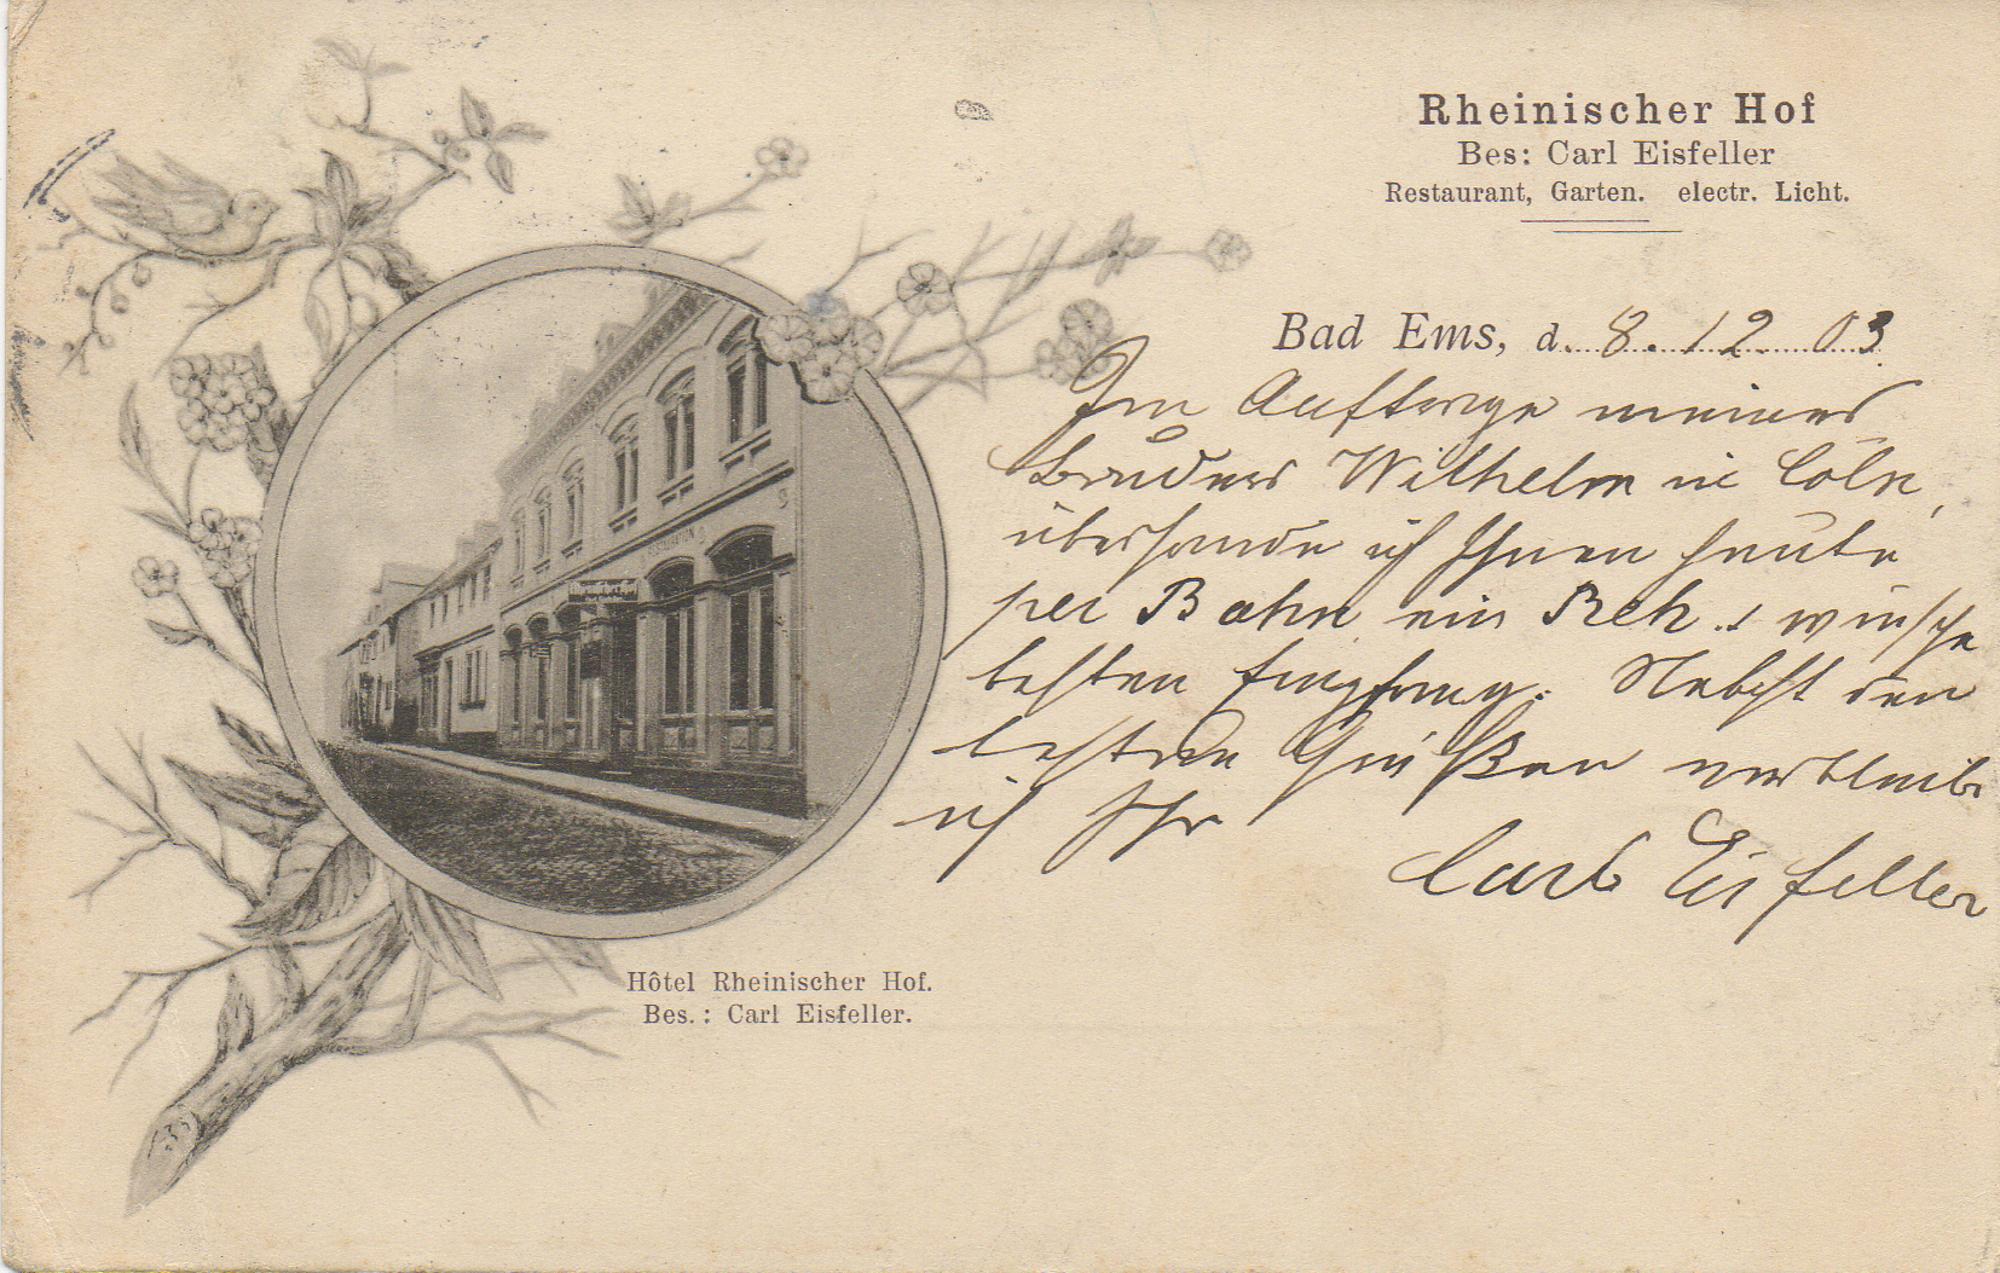 Rheinischer Hof
Bes: Carl Eisfeller
Restaurant, Garten. electr. Licht.
Bad Ems, d. 8. 12. 03
Im Auftrage meines
Bruders Wilhelm in Cöln,
übersande ich Ihnen heute
per Bahn ein Reh u. wünsche
besten Empfang. Nebst den
besten Grüßen verbleibe
ich Ihr
Carl Eisfeller
RESTAURATION
Hôtel Rheinischer Hof.
Bes.: Carl Eisfeller.